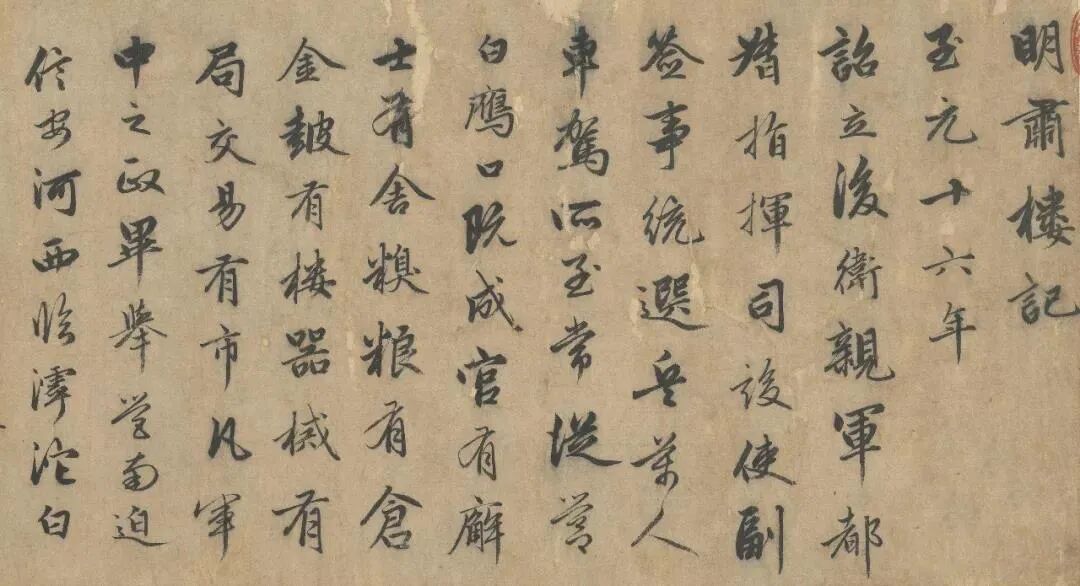 明肅樓記
至元十六年
詔立後衛親軍都
指揮司設使副
簽事統選兵萬人
車駕所至常從營
白鴈口既成官有廨
士有舍糗粮有倉
金鼓有樓器械有
局交易有市凡軍
中之政畢舉營南迫
信安河西臨滹沱白